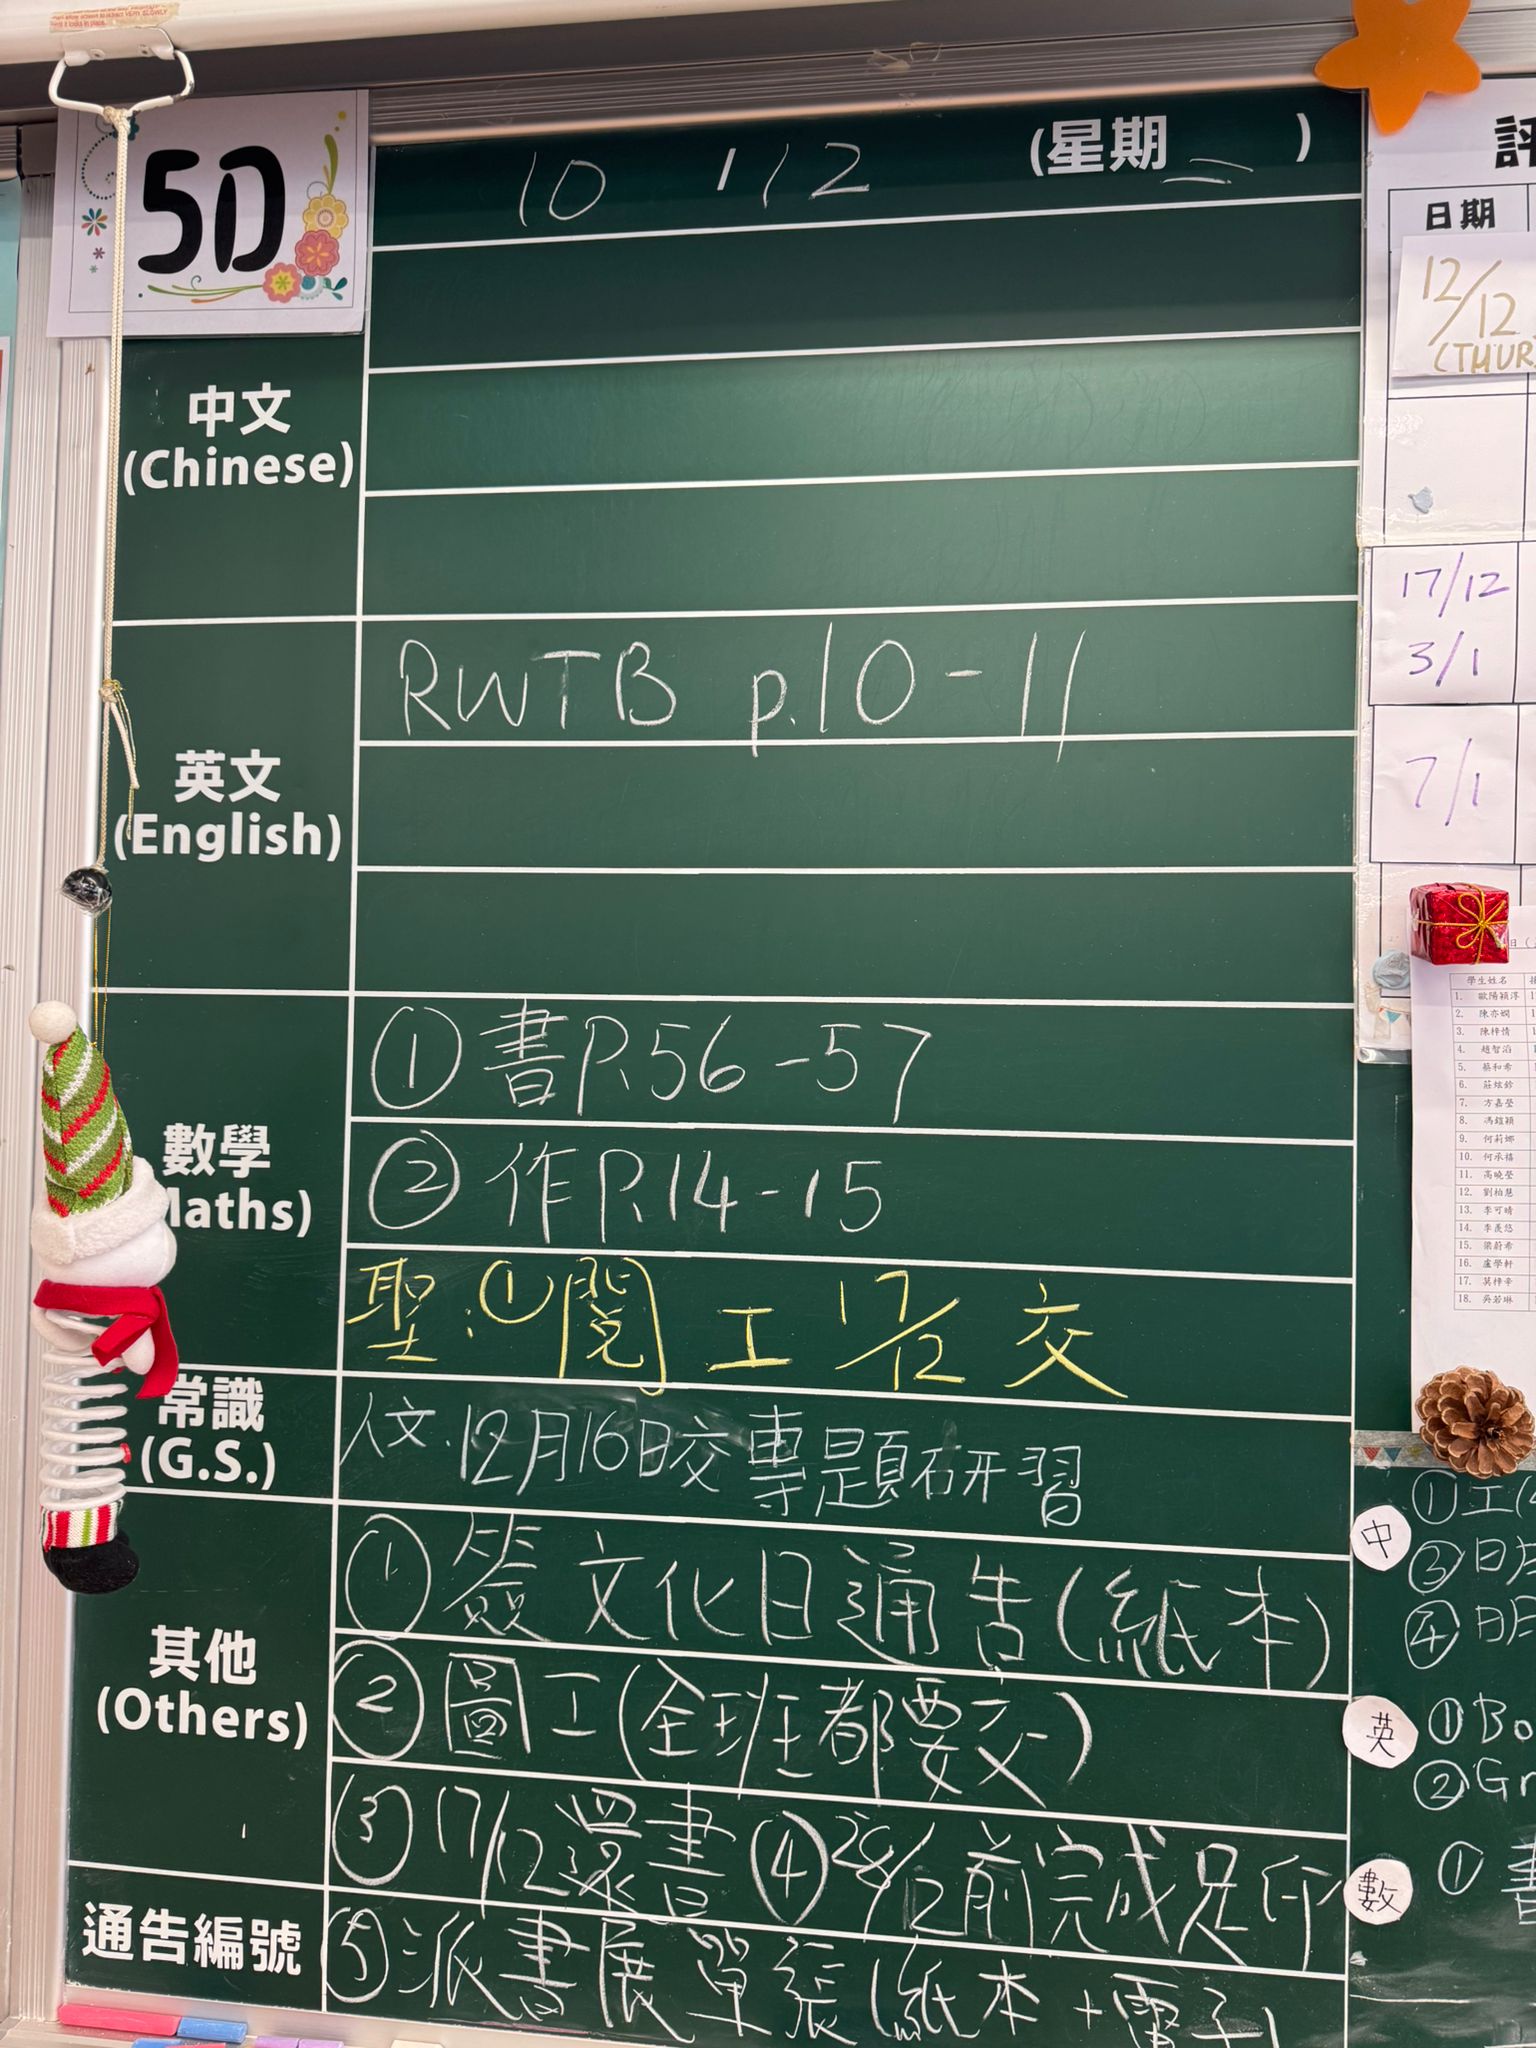 5D
10 / 12 (星期二)
中文
(Chinese)
英文
(English)
RWTB p.10-11
數學
aths)
① 書P.56-57
② 作P.14-15
聖:①閱工 17/12 交
常識
(G.S.)
人文. 12月16日交專題研習
其他
(Others)
① 簽文化日通告(紙本)
② 圖工(全班都要交)
③ 17/12還書 ④ 28/2前完成足印
通告編號
⑤ 派書展單張(紙本+電子)
評
日期
12/12
(THUR
17/12
3/1
7/1
學生姓名
1. 歐陽穎淳
2. 陳亦嫻
3. 陳梓情
4. 趙智滔
5. 蔡和希
6. 莊炫鈴
7. 方嘉瑩
8. 馮鎧穎
9. 何莉娜
10. 何承禧
11. 高曉瑩
12. 劉柏慧
13. 李可晴
14. 李羨悠
15. 梁蔚希
16. 盧學軒
17. 莫梓辛
18. 吳若琳
中
①工(
③日
④
英
①Bo
②Gr
數
① 書